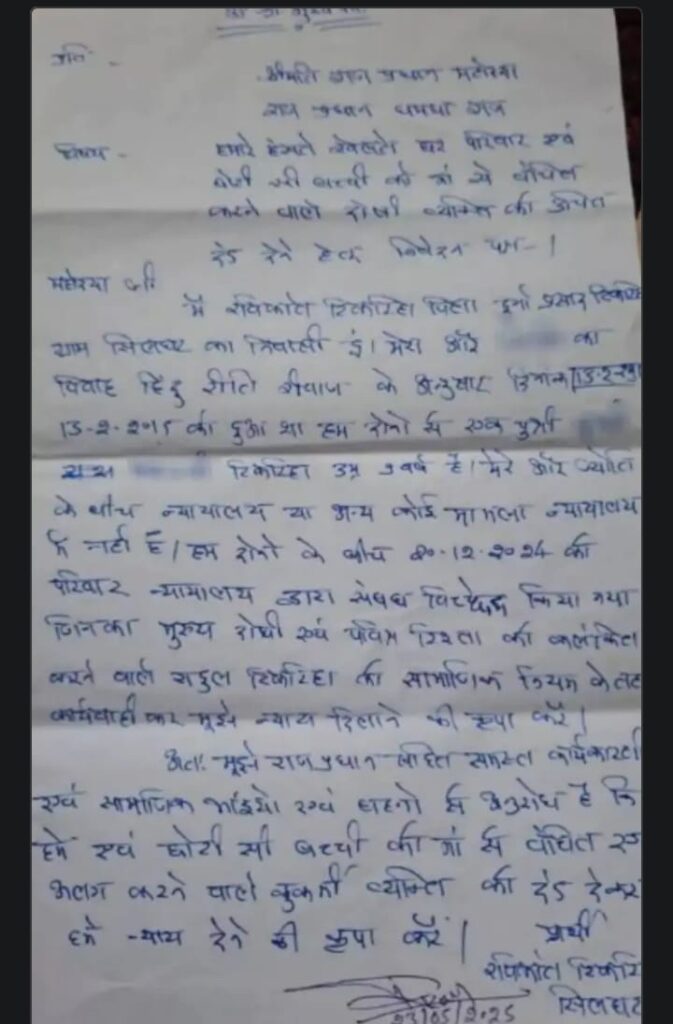 प्रति -
श्रीमति राज प्रधान महोदया
राज प्रधान धमधा राज
विषय - हमारे हंसते खेलते घर परिवार एवं
छोटी सी बच्ची को मां से वंचित
करने वाले दोषी व्यक्ति को उचित
दंड देने हेतु निवेदन पत्र - ।
महोदया जी
मैं रविकांत टिकरिहा पिता दुर्गा प्रसाद टिकरिहा
ग्राम सिलघट का निवासी हूं। मेरा और का
विवाह हिंदु रीति रीवाज के अनुसार दिनांक
13-2-2015 को हुआ था हम दोनो से एक पुत्री
टिकरिहा उम्र वर्ष है। मेरे और ज्योति
के बीच न्यायालय या अन्य कोई मामला न्यायालय
में नहीं है। हम दोनो के बीच 20.12.2024 को
परिवार न्यायालय द्वारा संबंध विच्छेद किया गया
जिनका मुख्य दोषी एवं पवित्र रिश्ता को कलंकित
करने वाले राहुल टिकरिहा को सामाजिक नियम के तहत
कार्यवाही कर मुझे न्याय दिलाने की कृपा करें।
अतः मुझे राज प्रधान सहित समस्त कार्यकारणी
एवं सामाजिक भाईयो एवं बहनो से अनुरोध है कि
हमे एवं छोटी सी बच्ची को मां से वंचित एवं
अलग करने वाले कुकर्मी व्यक्ति को दंड देकर
हमे न्याय देने की कृपा करें। प्रार्थी
रविकांत टिकरिहा
सिलघट
23/05/2025